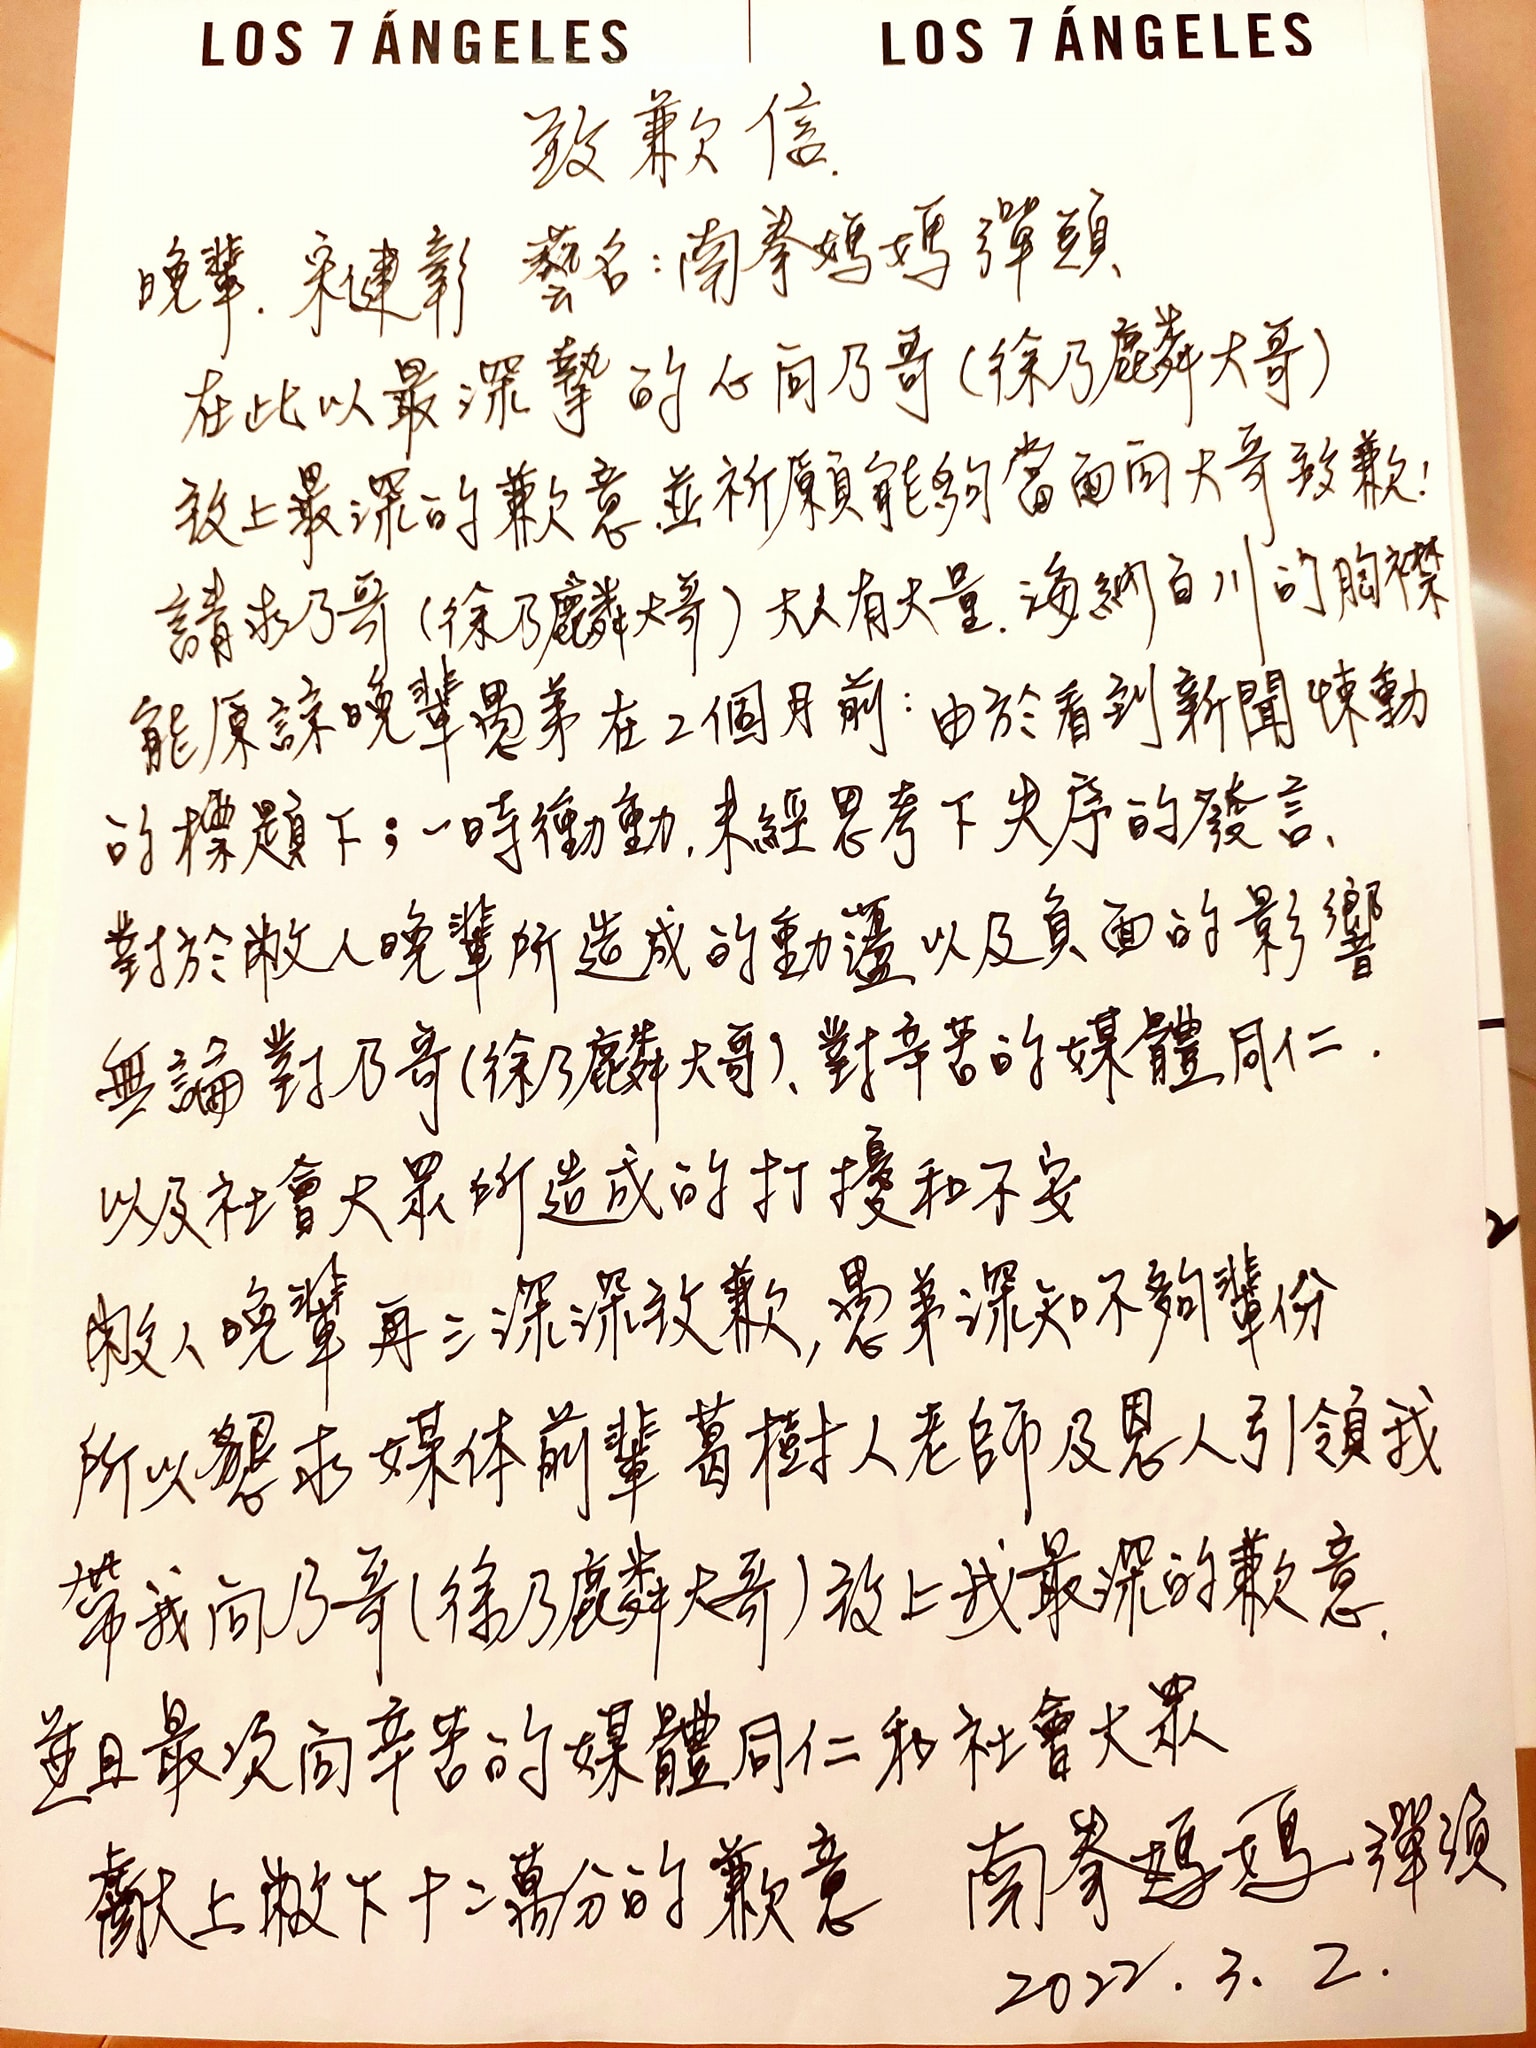 LOS 7 ÁNGELES LOS 7 ÁNGELES
致歉信.
晚輩. 宋健彰 藝名:南拳媽媽彈頭、
在此以最深摯的心向乃哥(徐乃麟大哥)
致上最深的歉意.並祈願能夠當面向大哥致歉!
請求乃哥(徐乃麟大哥)大人有大量.海納百川的胸襟
能原諒晚輩愚弟在2個月前:由於看到新聞悚動
的標題下;一時衝動.未經思考下失序的發言、
對於敝人晚輩所造成的動盪以及負面的影響
無論對乃哥(徐乃麟大哥)、對辛苦的媒體同仁.
以及社會大眾所造成的打擾和不安
敝人晚輩再三深深致歉,愚弟深知不夠輩份
所以懇求媒体前輩葛樹人老師及恩人引領我
帶我向乃哥(徐乃麟大哥)致上我最深的歉意.
並且最次向辛苦的媒體同仁和社會大眾
獻上敝下十二萬分的歉意 南拳媽媽.彈頭
2022.3.2.